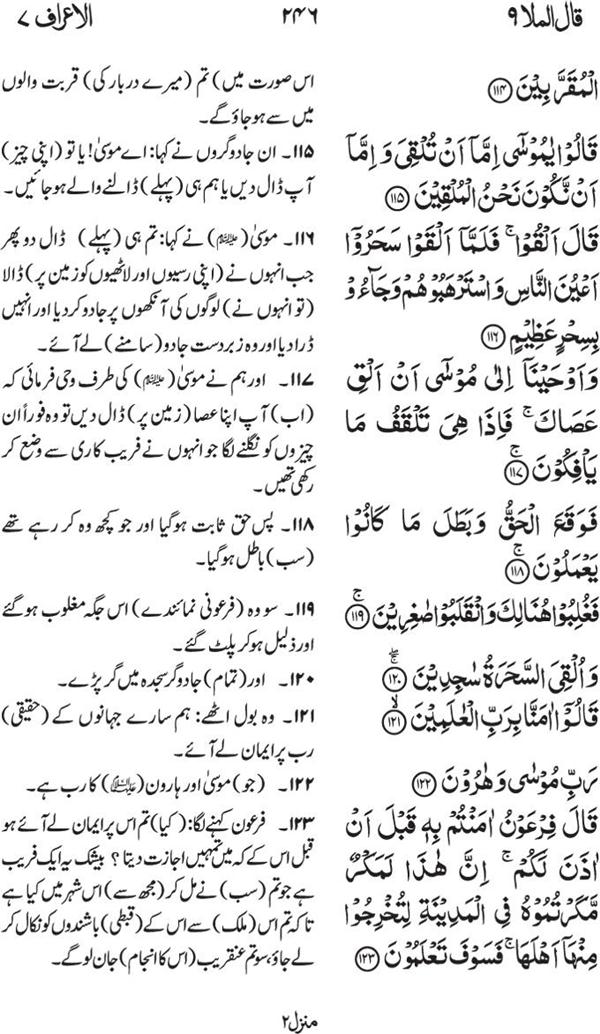 قال الملا ٩
٢٤٦
الاعراف ٧
الْمُقَرَّبِيْنَ ﴿۱۱۴﴾
قَالُوْا يٰمُوْسٰۤى اِمَّاۤ اَنْ تُلْقِيَ وَ اِمَّاۤ
اَنْ نَّكُوْنَ نَحْنُ الْمُلْقِيْنَ ﴿۱۱۵﴾
قَالَ اَلْقُوْا ۚ فَلَمَّاۤ اَلْقَوْا سَحَرُوْۤا
اَعْيُنَ النَّاسِ وَ اسْتَرْهَبُوْهُمْ وَ جَآءُوْ
بِسِحْرٍ عَظِيْمٍ ﴿۱۱۶﴾
وَ اَوْحَيْنَاۤ اِلٰى مُوْسٰۤى اَنْ اَلْقِ
عَصَاكَ ۚ فَاِذَا هِيَ تَلْقَفُ مَا
يَاْفِكُوْنَ ﴿۱۱۷﴾ۚ
فَوَقَعَ الْحَقُّ وَ بَطَلَ مَا كَانُوْا
يَعْمَلُوْنَ ﴿۱۱۸﴾ۚ
فَغُلِبُوْا هُنَالِكَ وَ انْقَلَبُوْا صٰغِرِيْنَ ﴿۱۱۹﴾ۚ
وَ اُلْقِيَ السَّحَرَةُ سٰجِدِيْنَ ﴿۱۲۰﴾ۚۖ
قَالُوْۤا اٰمَنَّا بِرَبِّ الْعٰلَمِيْنَ ﴿۱۲۱﴾ۙ
رَبِّ مُوْسٰى وَ هٰرُوْنَ ﴿۱۲۲﴾
قَالَ فِرْعَوْنُ اٰمَنْتُمْ بِهٖ قَبْلَ اَنْ
اٰذَنَ لَكُمْ ۚ اِنَّ هٰذَا لَمَكْرٌ
مَّكَرْتُمُوْهُ فِي الْمَدِيْنَةِ لِتُخْرِجُوْا
مِنْهَاۤ اَهْلَهَا ۚ فَسَوْفَ تَعْلَمُوْنَ ﴿۱۲۳﴾
اس صورت میں) تم (میرے دربار کی) قربت والوں
میں سے ہو جاؤ گے۔
۱۱۵۔ ان جادوگروں نے کہا: اے موسیٰ! یا تو (اپنی چیز)
آپ ڈال دیں یا ہم ہی (پہلے) ڈالنے والے ہو جائیں۔
۱۱۶۔ موسیٰ (علیہ السلام) نے کہا: تم ہی (پہلے) ڈال دو پھر
جب انہوں نے (اپنی رسیوں اور لاٹھیوں کو زمین پر) ڈالا
(تو انہوں نے) لوگوں کی آنکھوں پر جادو کر دیا اور انہیں
ڈرا دیا اور وہ زبردست جادو (سامنے) لے آئے۔
۱۱۷۔ اور ہم نے موسیٰ (علیہ السلام) کی طرف وحی فرمائی کہ
(اب) آپ اپنا عصا (زمین پر) ڈال دیں تو وہ فوراً ان
چیزوں کو نگلنے لگا جو انہوں نے فریب کاری سے وضع کر
رکھی تھیں۔
۱۱۸۔ پس حق ثابت ہو گیا اور جو کچھ وہ کر رہے تھے
(سب) باطل ہو گیا۔
۱۱۹۔ سو وہ (فرعونی نمائندے) اس جگہ مغلوب ہو گئے
اور ذلیل ہو کر پلٹ گئے۔
۱۲۰۔ اور (تمام) جادوگر سجدہ میں گر پڑے۔
۱۲۱۔ وہ بول اٹھے: ہم سارے جہانوں کے (حقیقی)
رب پر ایمان لے آئے۔
۱۲۲۔ (جو) موسیٰ اور ہارون (علیہما السلام) کا رب ہے۔
۱۲۳۔ فرعون کہنے لگا: (کیا) تم اس پر ایمان لے آئے ہو
قبل اس کے کہ میں تمہیں اجازت دیتا؟ بیشک یہ ایک فریب
ہے جو تم (سب) نے مل کر (مجھ سے) اس شہر میں کیا ہے
تاکہ تم اس (ملک) سے اس کے (قبطی) باشندوں کو نکال کر
لے جاؤ، سو تم عنقریب (اس کا انجام) جان لو گے۔
منزل ۲